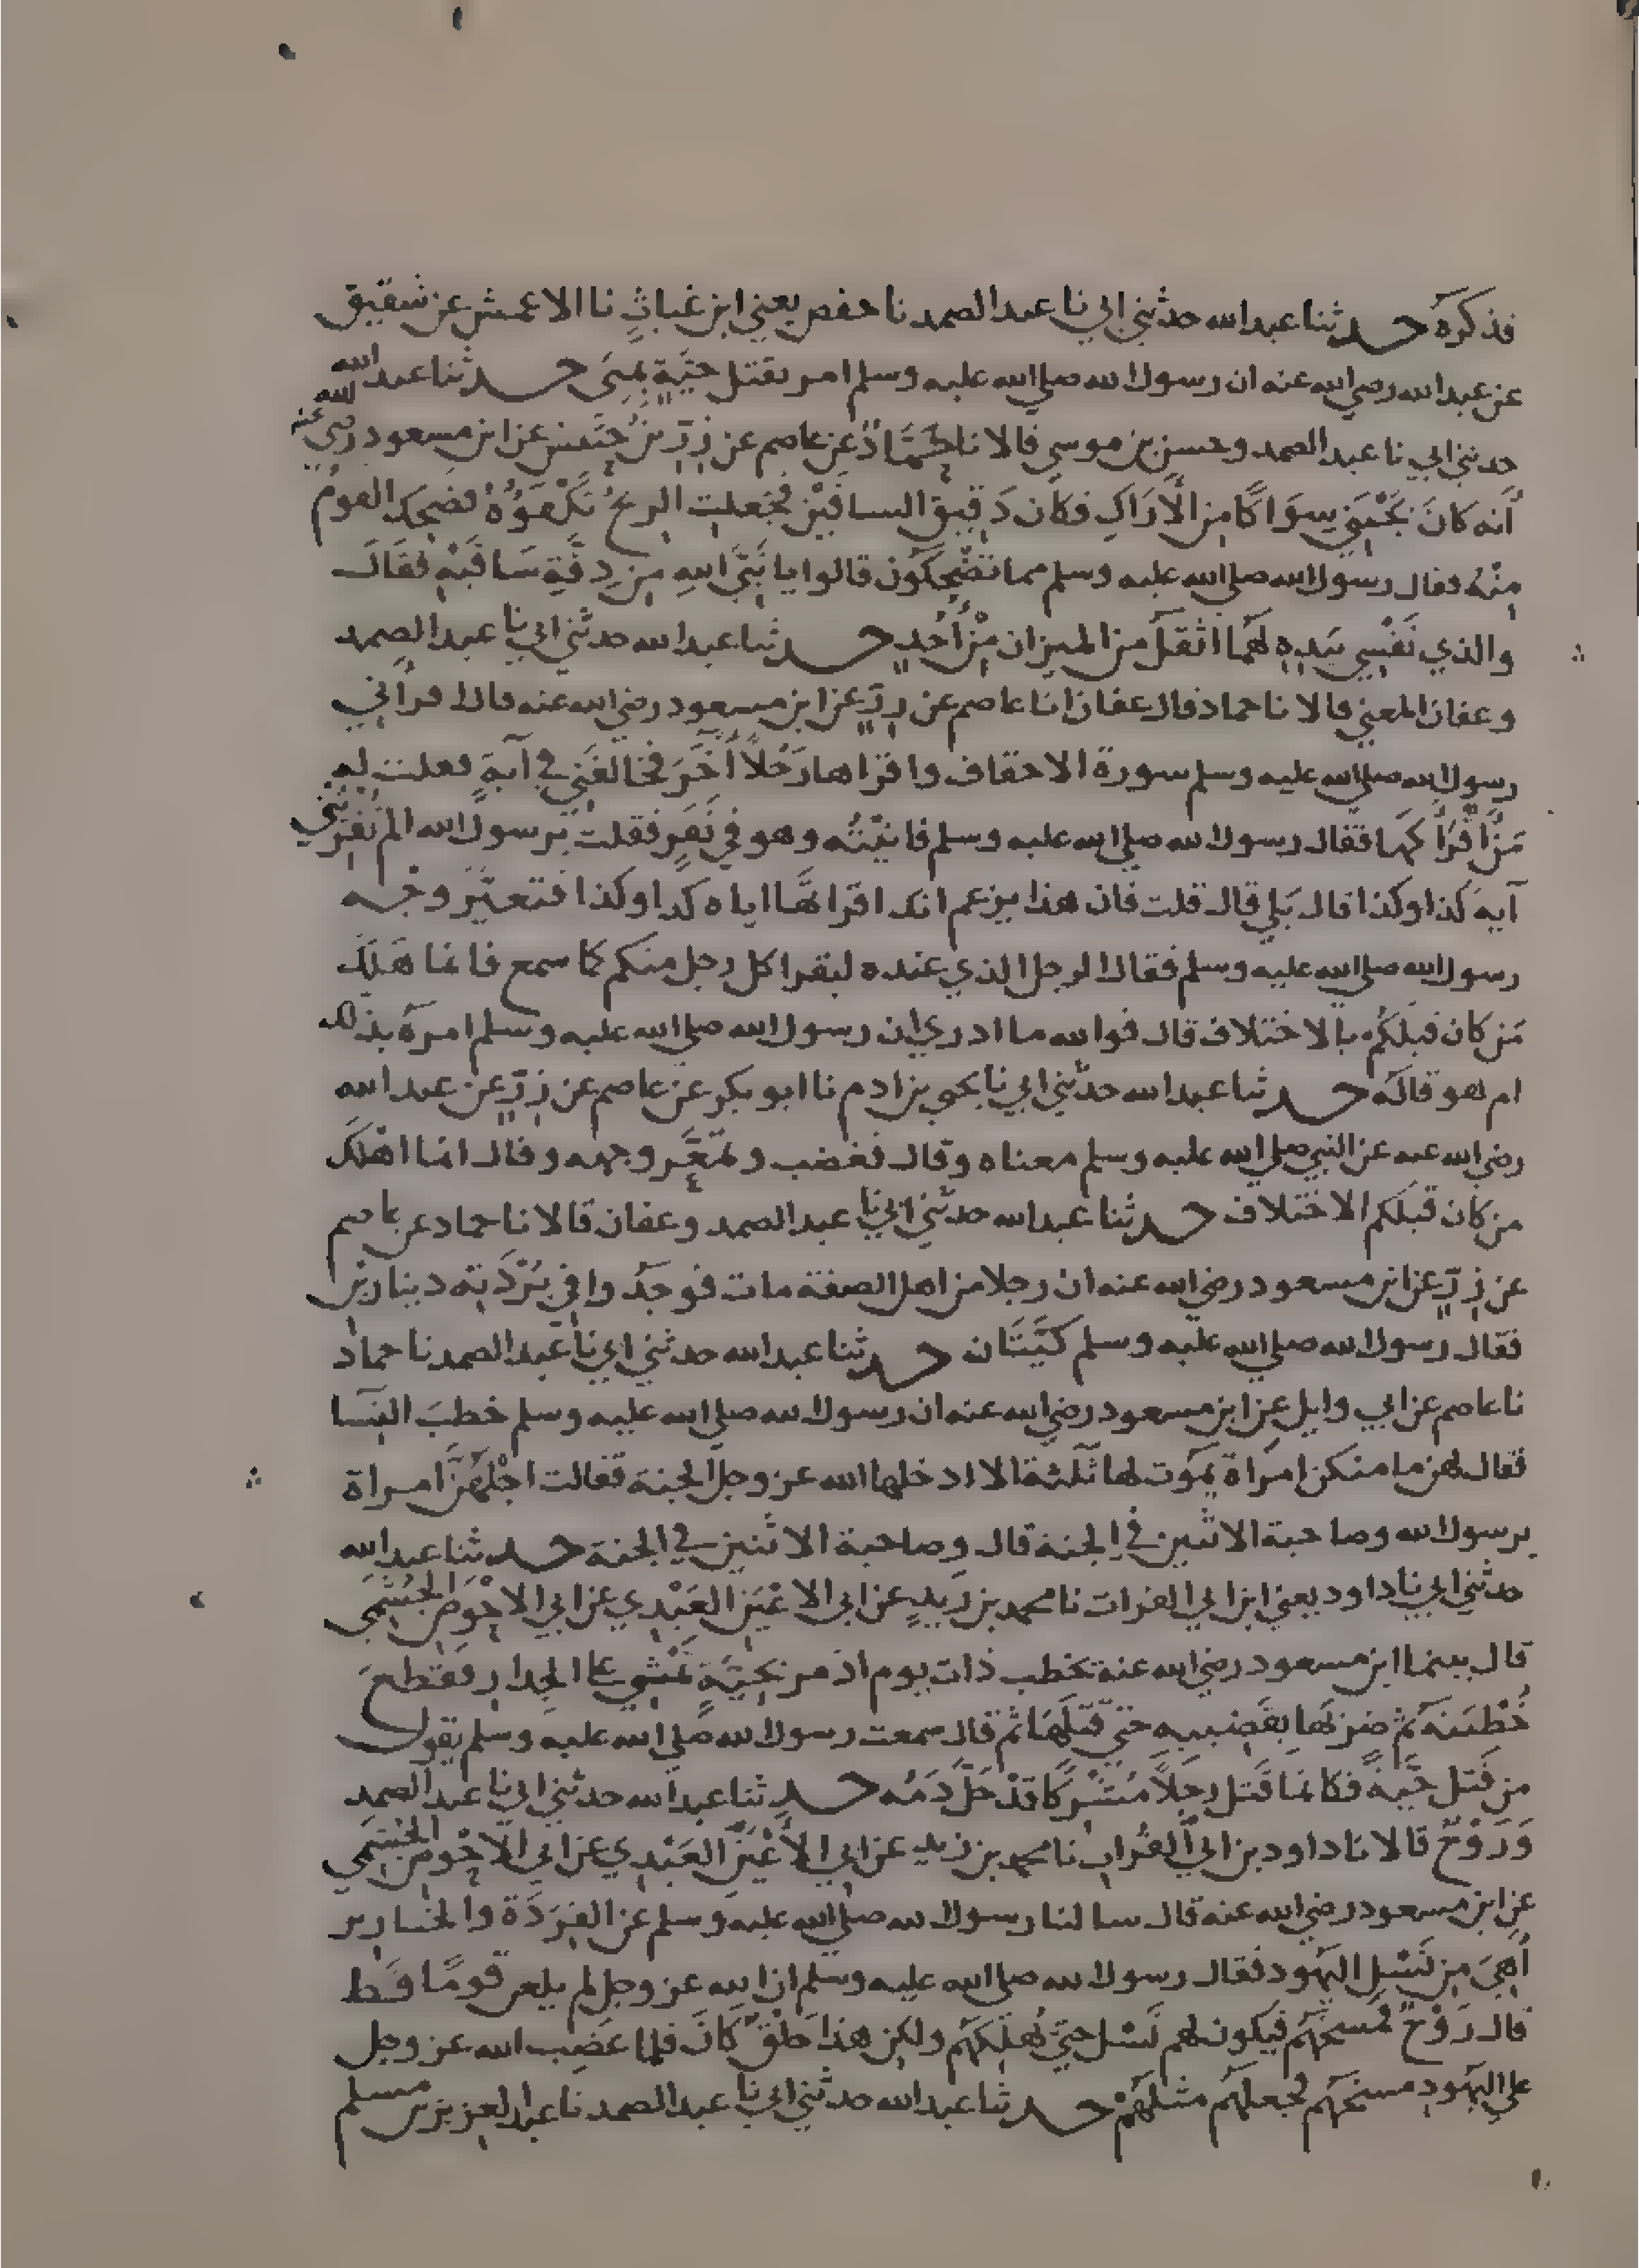 فذكره حدثنا عبد الله حدثني ابي نا عبد الصمد نا حفص يعني ابن غياث نا الاعمش عن شقيق
عن عبد الله رضي الله عنه ان رسول الله صلى الله عليه وسلم امر بقتل حَيَّةٍ بِمِنَى حدثنا عبد الله
حدثني ابي نا عبد الصمد وحسن بن موسى قالا نا حَمَّادٌ عن عاصم عن زِرِّ بن حُبَيش عن ابن مسعود رضي الله عنه
أنه كانَ يَجْتَنِي سِوَاكًا مِنَ الأَرَاكِ فكان دَقِيقَ الساقَيْنِ فجَعلت الريحُ تَكْفَؤُهُ فضَحِكَ القومُ
مِنْهُ فقال رسول الله صلى الله عليه وسلم مما تَضْحَكُون قالوا يا نَبِيَّ اللهِ مِن دِقَّةِ سَاقَيْهِ فقَالَ
والذي نَفْسِي بِيَدِهِ لَهُمَا اثقَلُ من الميزان مِنْ أُحُدٍ حدثنا عبد الله حدثني ابي نا عبد الصمد
وعفان المعني قالا نا حماد قال عفان انا عاصم عن زِرٍّ عن ابن مسعود رضي الله عنه قال اقرأني
رسول الله صلى الله عليه وسلم سورة الاحقاف واقراها رَجُلاً آخَرَ فخَالَفَنِي في آيةٍ فقلت له
مَنْ أَقْرَأَكَهَا فقال رسول الله صلى الله عليه وسلم فاتيْتُه وهو في نَفَرٍ فقلت يرسول الله الم تُقْرِئْني
آية كذا وكذا قال بَلى قال قلت فان هذا يزعم انك اقراتَها اياه كذا وكذا فتغيَّرَ وجْه
رسول الله صلى الله عليه وسلم فقال الرجل الذي عنده ليقرا كل رجل منكم كما سمع فانما هَلَكَ
مَن كان قبلكُم بالاختلاف قال فوالله ما ادري ان رسول الله صلى الله عليه وسلم امرهُ بذلك
ام هو قاله حدثنا عبد الله حدثني ابي نا يحيى بن ادم نا ابو بكر عن عاصم عن زِرٍّ عن عبد الله
رضي الله عنه عن النبي صلى الله عليه وسلم معناه وقال فغضب وتمعَّر وجهه وقال انما اهْلَكَ
من كان قبلكم الاختلاف حدثنا عبد الله حدثني ابي نا عبد الصمد وعفان قالا نا حماد عن عاصم
عن زِرٍّ عن ابن مسعود رضي الله عنه ان رجلا من اهل الصفة مات فوجَدُوا في بُرْدَتِه دينارين
فقال رسول الله صلى الله عليه وسلم كَيَّتَان حدثنا عبد الله حدثني ابي نا عبد الصمد نا حماد
نا عاصم عن ابي وايل عن ابن مسعود رضي الله عنه ان رسول الله صلى الله عليه وسلم خطبَ النِّسا
فقال لهن ما منكن امراة يموت لها ثلثة الا ادخلها الله عز وجل الجنة فقالت اجْلُهُنَّ امراة
يرسول الله وصاحبة الاثنين في الجنة قال وصاحبة الاثنين في الجنة حدثنا عبد الله
حدثني ابي نا داود يعني ابن ابي الفرات نا محمد بن زيدٍ عن ابي الاعْيَنِ العَبْدِي عن ابي الاحْوَصِ الجُشَمِي
قال بينما ابن مسعود رضي الله عنه يخطب ذات يوم اذ مر بحَيَّةٍ تَمْشِي على الجِدار فقطعَ
خُطْبَتَه ثم ضربَها بقَضِيبِه حتى قتلَهَا ثم قال سمعت رسول الله صلى الله عليه وسلم يقول
من قتل حَيَّةً فكانمَا قَتل رجلاً مُشْرِكًا قدْ حَلَّ دَمُه حدثنا عبد الله حدثني ابي نا عبد الصمد
وَرَوْحٌ قالا نا داود بن ابي الفُرات نا محمد بن زيد عن ابي الأَعْيَنِ العَبْدِي عن ابي الاحْوصِ الجُشَمِي
عن ابن مسعود رضي الله عنه قال سالنا رسول الله صلى الله عليه وسلم عن القِرَدَة والخنازير
أَهِيَ مِن نَسْلِ اليهُود فقال رسول الله صلى الله عليه وسلم ان الله عز وجل لم يلعن قومًا قط
قال رَوْحٌ فمسَخَهُم فيكون لهم نَسْل حتى يُهلكَهُم ولكن هذا خَلْقٌ كَانَ فلما غَضِبَ الله عز وجل
على اليهُودِ مسخَهُم فجعلهُم مثلَهُمْ حدثنا عبد الله حدثني ابي نا عبد الصمد نا عبد العزيز بن مسلم